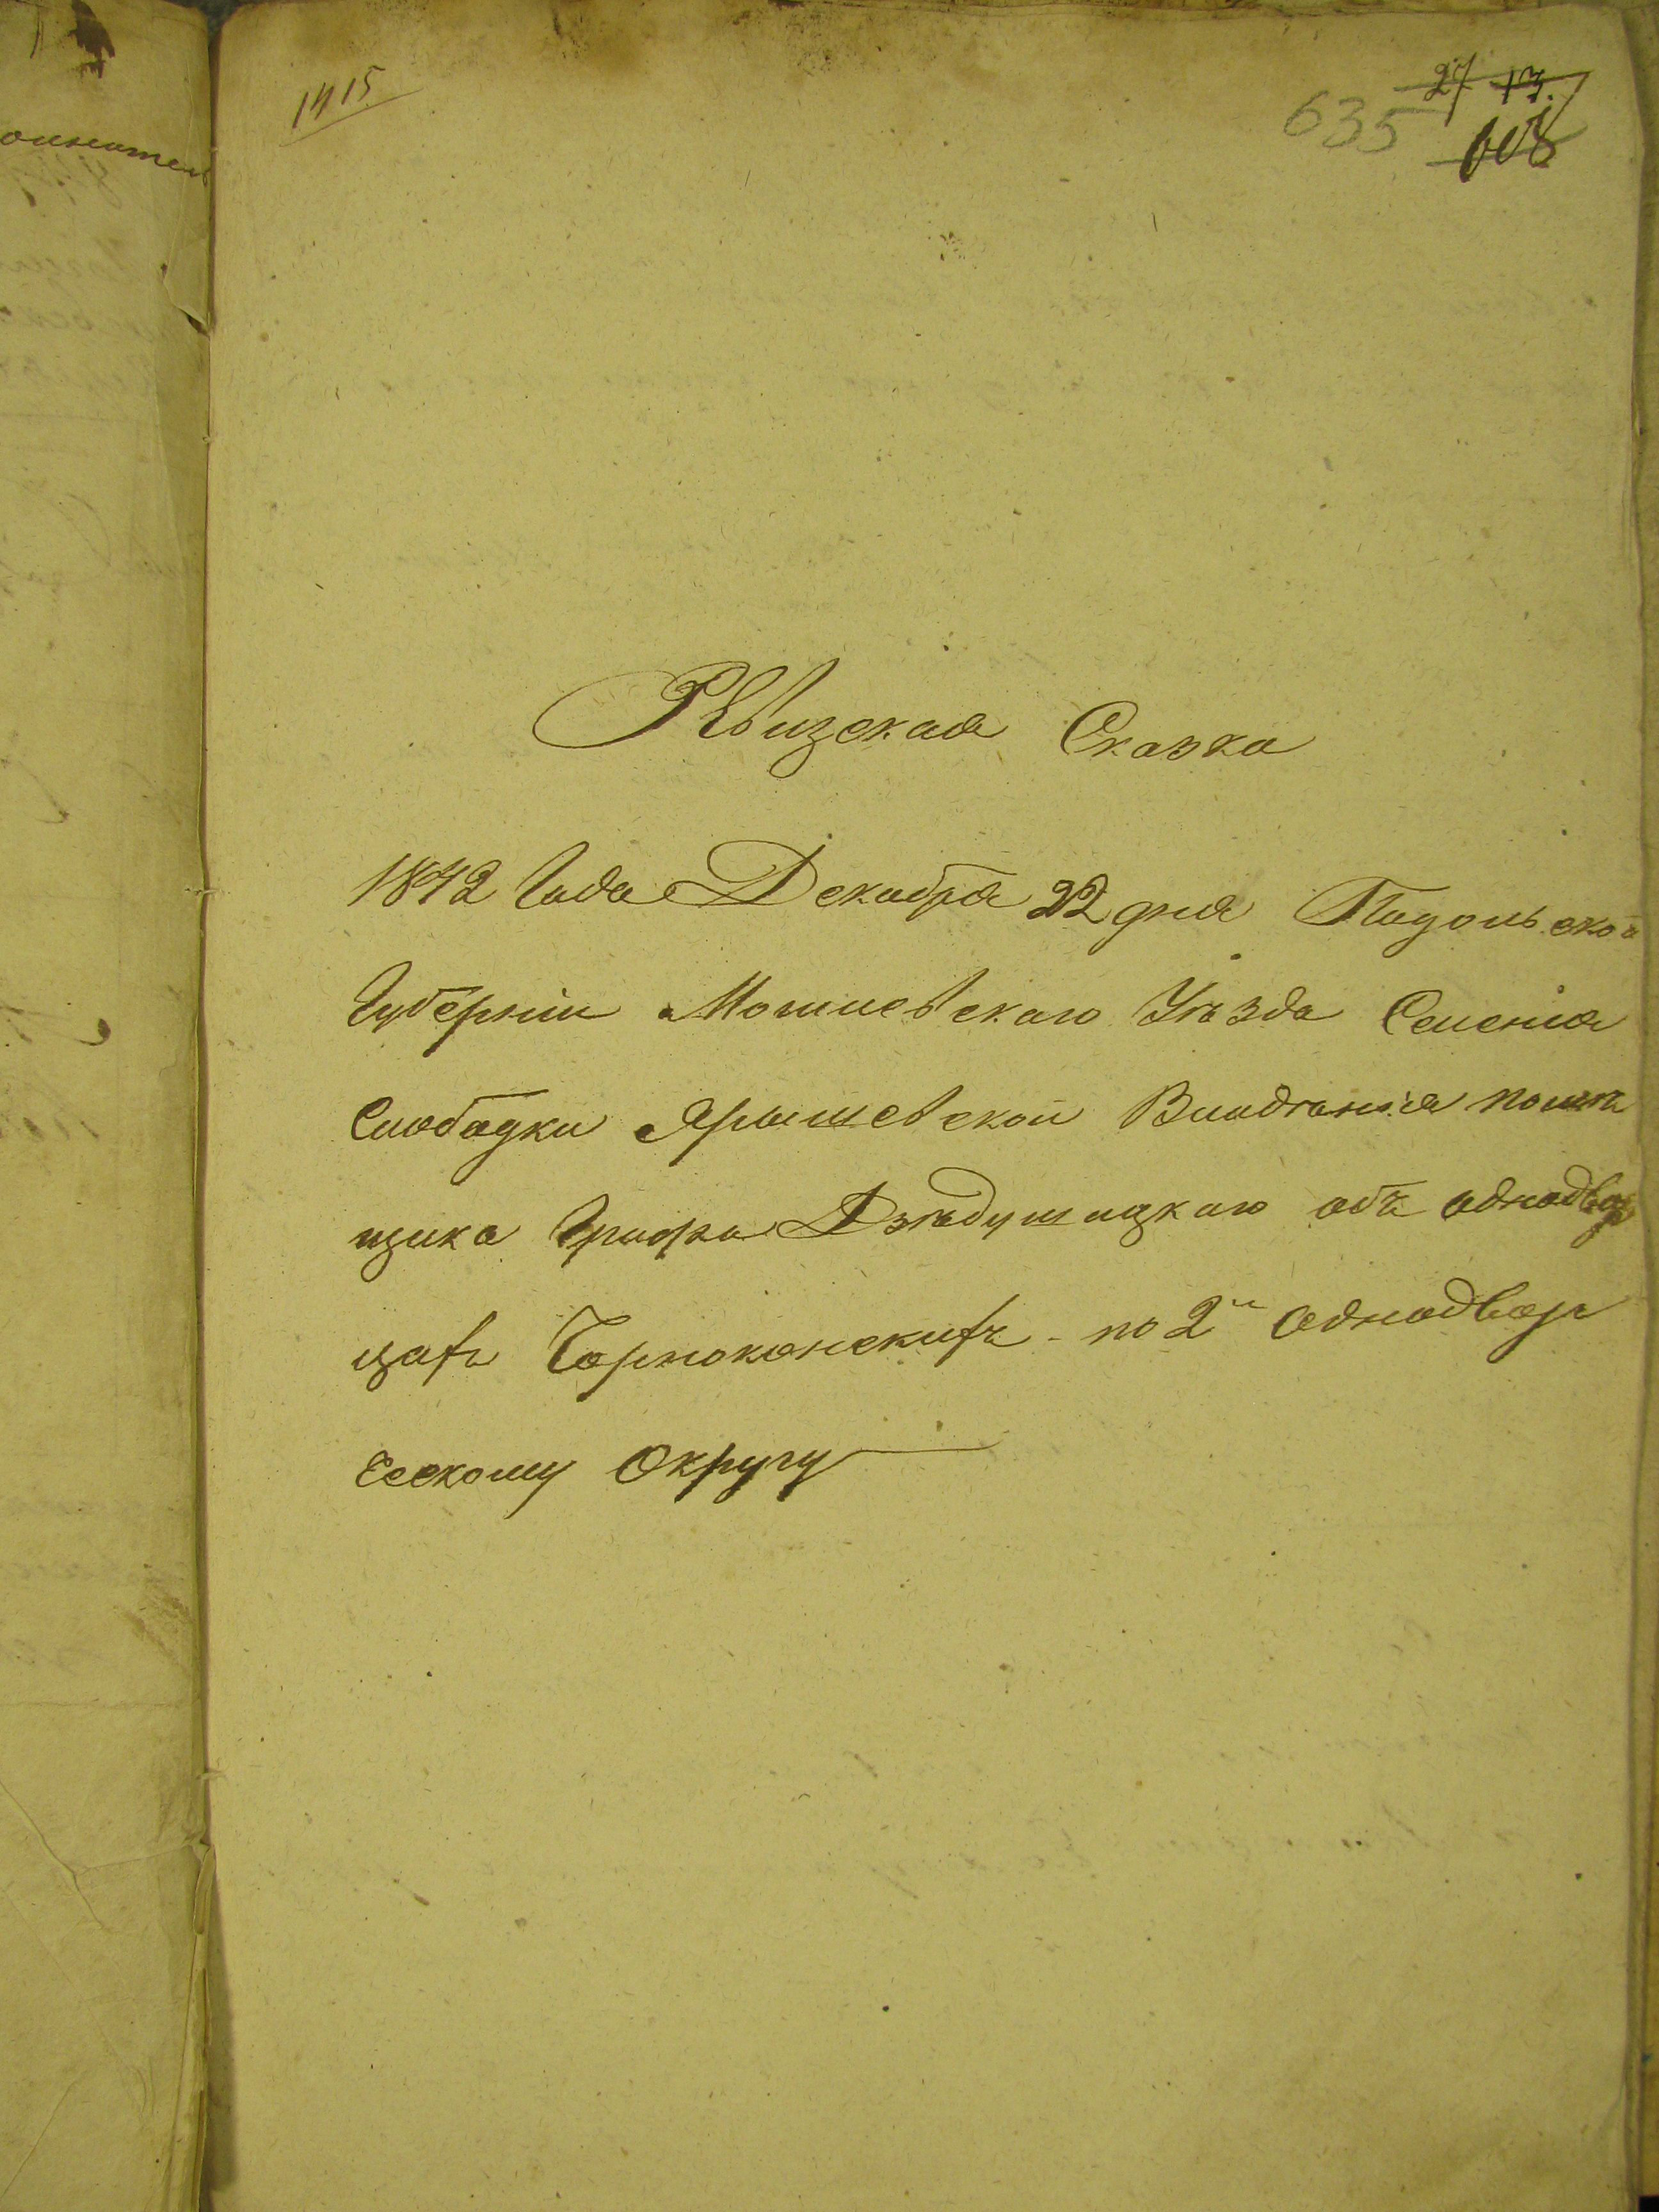 1415
27 13.
635 608
Рѣвизская Сказка
1842 Года Декабря 22 дня Подольской
Губернии Могилевскаго Уѣзда Селенія
Слободки Ярышевской Владѣнія помѣ
щика Графа Дзѣдушицкаго объ однодвор
цахъ Чорноконскихъ - по 2й Однодвор
ческому Округу